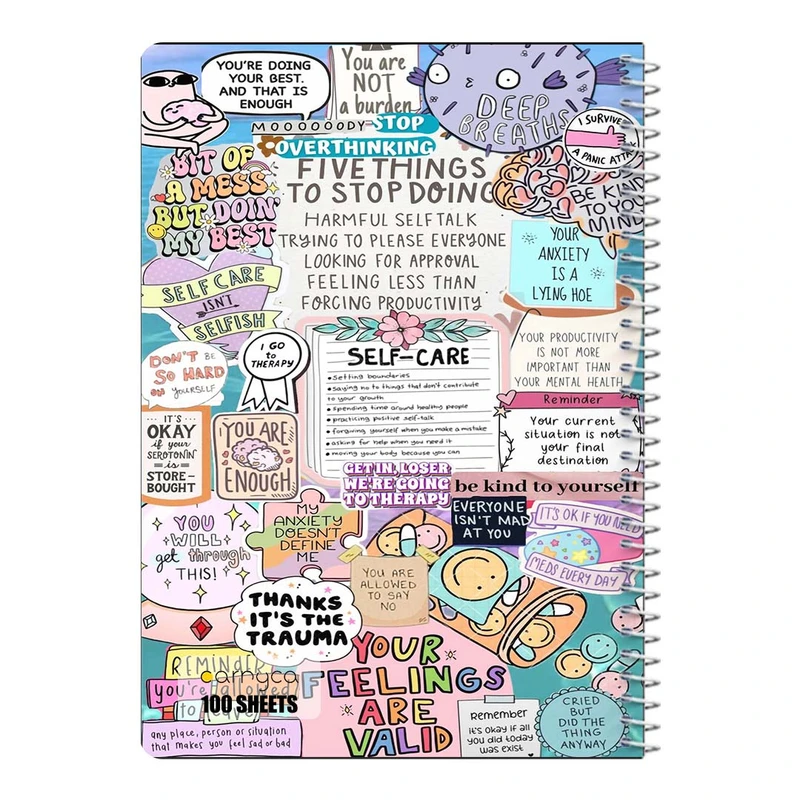 YOU'RE DOING
YOUR BEST.
AND THAT IS
ENOUGH
You are
NOT
a burden
DEEP
BREATHS
I SURVIVE
A PANIC ATTA
MOOOOOODY
STOP
OVERTHINKING
BIT OF
A MESS
BUT DOIN'
MY BEST
FIVE THINGS
TO STOP DOING
HARMFUL SELF TALK
TRYING TO PLEASE EVERYONE
LOOKING FOR APPROVAL
FEELING LESS THAN
FORCING PRODUCTIVITY
BE KIND
TO YOUR
MIND
YOUR
ANXIETY
IS A
LYING HOE
SELF CARE
ISN'T
SELFISH
I GO
to
THERAPY
DON'T BE
SO HARD
ON YOURSELF
SELF-CARE
•Setting boundaries
•saying no to things that don't contribute
to your growth
•spending time around healthy people
•practicing positive self-talk
•forgiving yourself when you make a mistake
•asking for help when you need it
•moving your body because you can
YOUR PRODUCTIVITY
IS NOT MORE
IMPORTANT THAN
YOUR MENTAL HEALTH
Reminder
Your current
situation is not
your final
destination
IT'S
OKAY
if YOUR
SEROTONIN
IS
STORE-
BOUGHT
YOU ARE
ENOUGH
GET IN, LOSER
WE'RE GOING
TO THERAPY
be kind to yourself
YOU
WILL
get through
THIS!
MY
ANXIETY
DOESN'T
DEFINE
ME
EVERYONE
ISN'T MAD
AT YOU
IT'S OK IF YOU NEED
MEDS EVERY DAY
YOU ARE
ALLOWED
TO SAY
NO
THANKS
IT'S THE
TRAUMA
REMINDER
you're allowed
to leave
any place, person or situation
that makes you feel sad or bad
100 SHEETS
YOUR
FEELINGS
ARE
VALID
Remember
it's okay if all
you did today
was exist
CRIED
BUT
DID THE
THING
ANYWAY